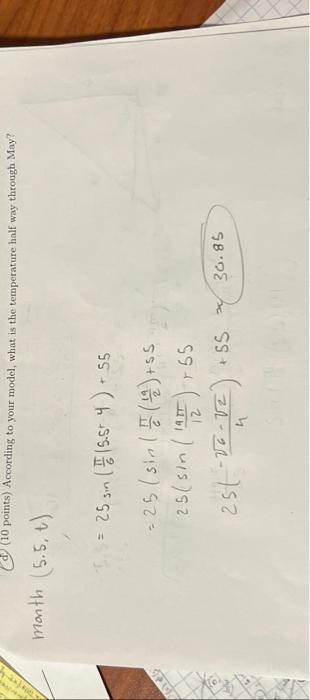 (d) (10 points) According to your model, what is the temperature half way through May?
month (5.5, t)
= 25 sin (π/6 (5.5+4)) + 55
= 25 (sin (π/6 (19/2)) + 55
25 (sin (19π/12) + 55
25 (-√6 - √2 / 4) + 55 ≈ 30.85